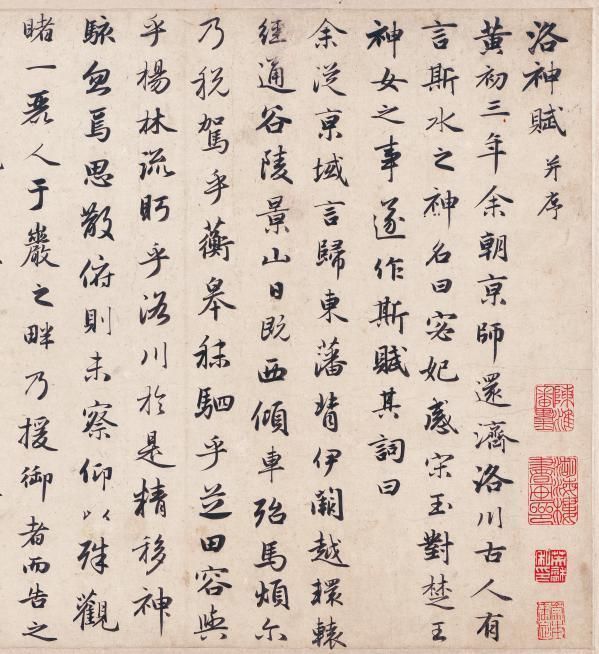 洛神賦 并序
黃初三年余朝亰師還濟洛川古人有
言斯水之神名曰宓妃感宋玉對楚王
神女之事遂作斯賦其詞曰
余從亰域言歸東藩背伊闕越轘轅
經通谷陵景山日既西傾車殆馬煩尓
乃稅駕乎蘅皋秣駟乎芝田容與
乎楊林流眄乎洛川於是精移神
駭忽焉思散俯則未察仰以殊觀
睹一麗人于巖之畔乃援御者而告之